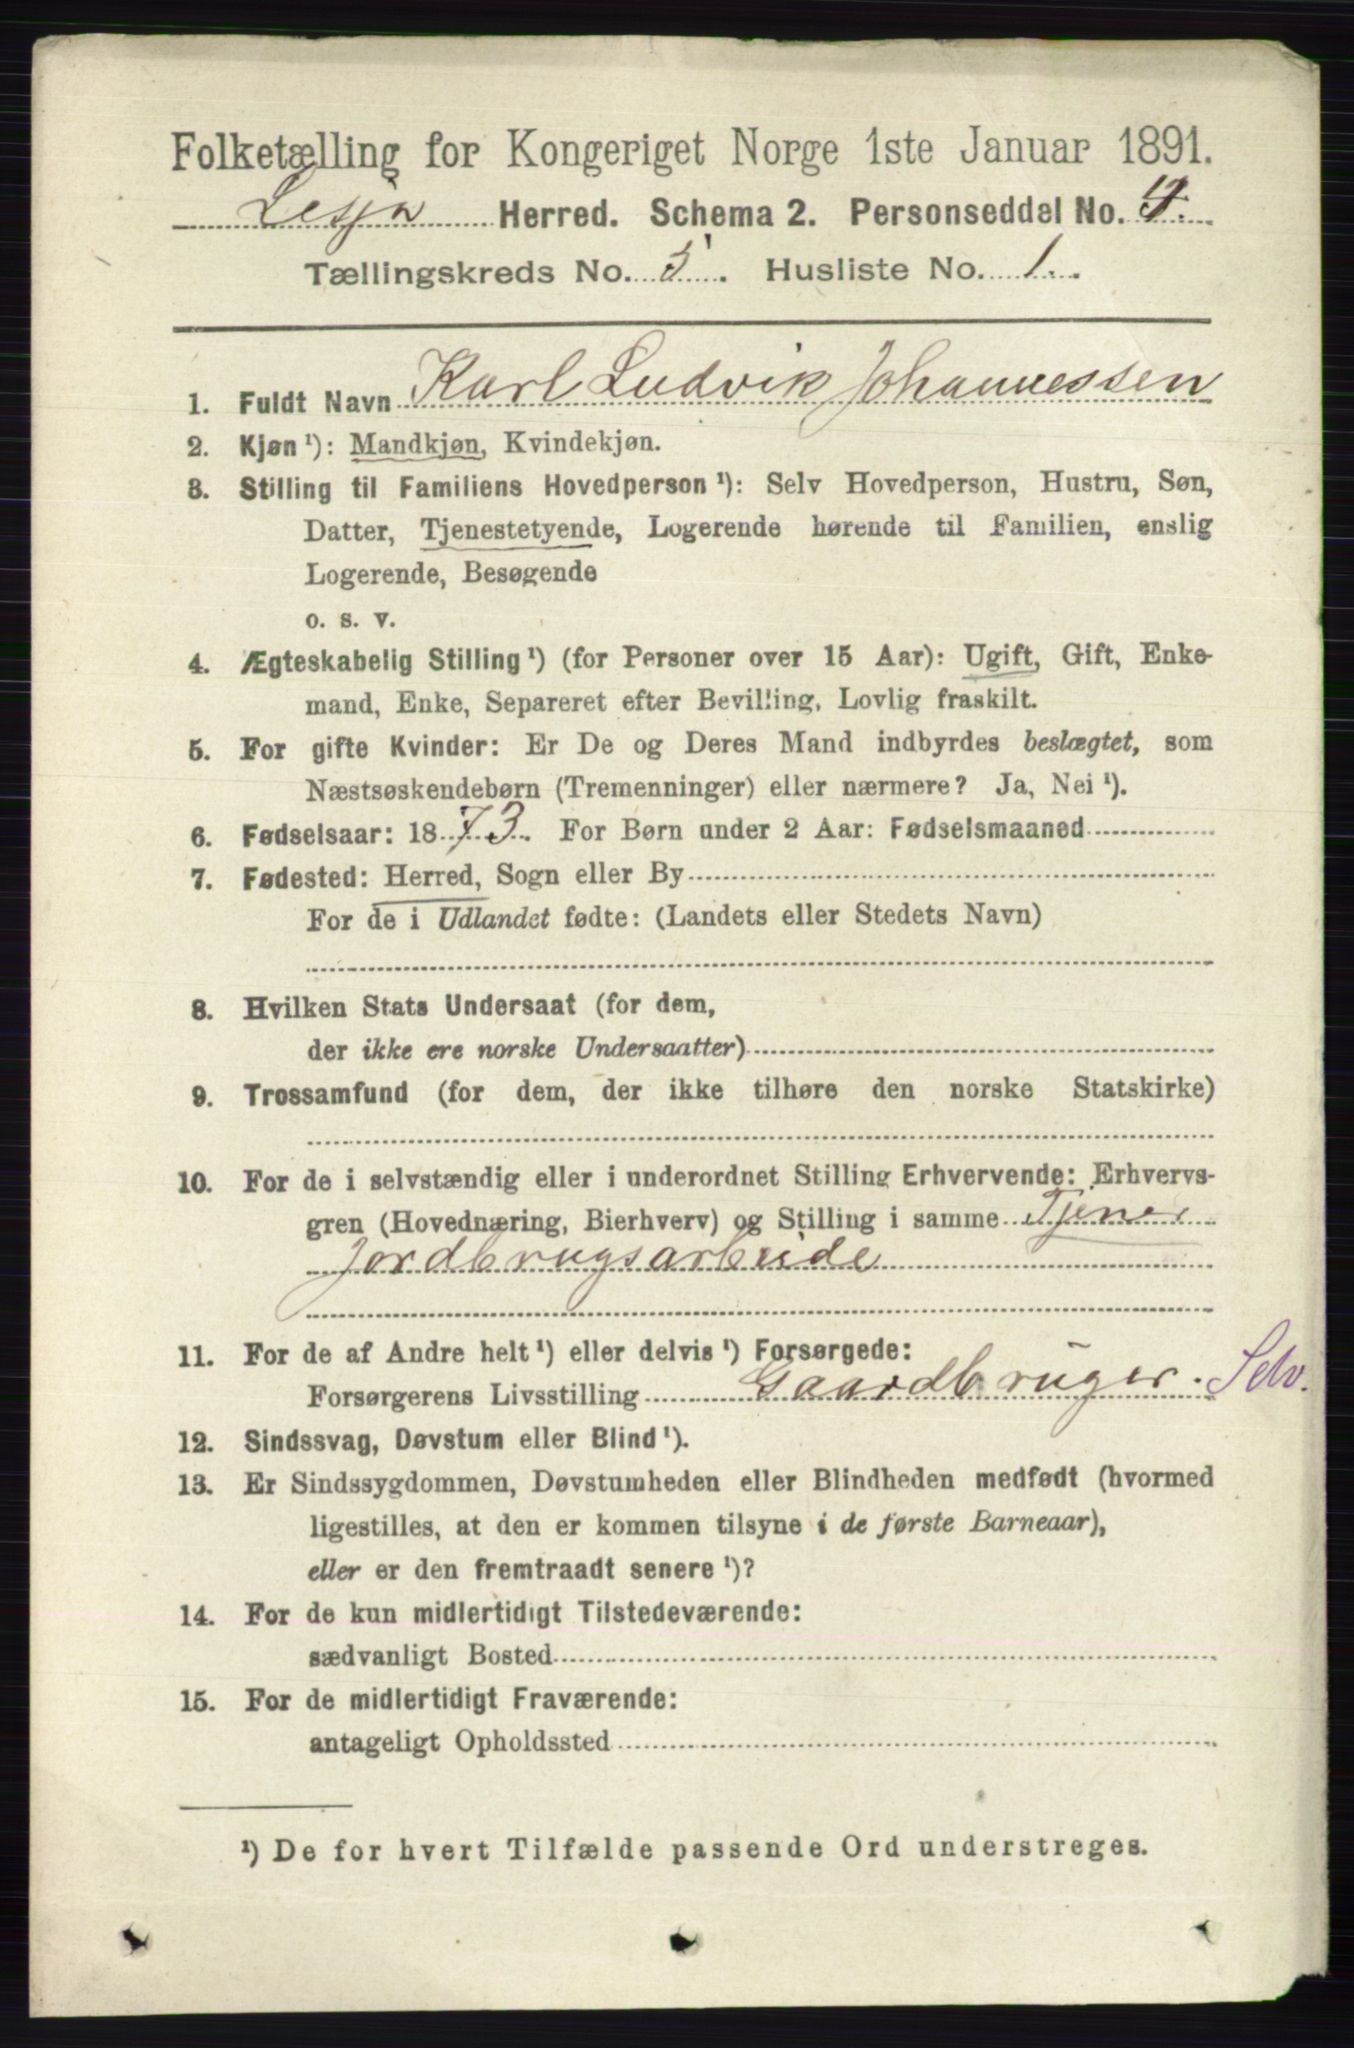 Folketælling for Kongeriget Norge 1ste Januar 1891.
Lesja Herred. Schema 2. Personseddel No.
Tællingskreds No. 5. Husliste No. 1.
1. Fuldt Navn Karl Ludvik Johannessen
2. Kjøn ¹): Mandkjøn, Kvindekjøn.
3. Stilling til Familiens Hovedperson ¹): Selv Hovedperson, Hustru, Søn,
Datter, Tjenestetyende, Logerende hørende til Familien, enslig
Logerende, Besøgende
o. s. v.
4. Ægteskabelig Stilling ¹) (for Personer over 15 Aar): Ugift, Gift, Enke-
mand, Enke, Separeret efter Bevilling, Lovlig fraskilt.
5. For gifte Kvinder: Er De og Deres Mand indbyrdes beslægtet, som
Næstsøskendebørn (Tremenninger) eller nærmere? Ja, Nei ¹).
6. Fødselsaar: 1873. For Børn under 2 Aar: Fødselsmaaned
7. Fødested: Herred, Sogn eller By
For de i Udlandet fødte: (Landets eller Stedets Navn)
8. Hvilken Stats Undersaat (for dem,
der ikke ere norske Undersaatter)
9. Trossamfund (for dem, der ikke tilhøre den norske Statskirke)
10. For de i selvstændig eller i underordnet Stilling Erhvervende: Erhvervs-
gren (Hovednæring, Bierhverv) og Stilling i samme Tjener
Jordbrugsarbeide
11. For de af Andre helt ¹) eller delvis ¹) Forsørgede:
Forsørgerens Livsstilling Gaardbruger. Selv.
12. Sindssvag, Døvstum eller Blind ¹).
13. Er Sindssygdommen, Døvstumheden eller Blindheden medfødt (hvormed
ligestilles, at den er kommen tilsyne i de første Barneaar),
eller er den fremtraadt senere ¹)?
14. For de kun midlertidigt Tilstedeværende:
sædvanligt Bosted
15. For de midlertidigt Fraværende:
antageligt Opholdssted
¹) De for hvert Tilfælde passende Ord understreges.